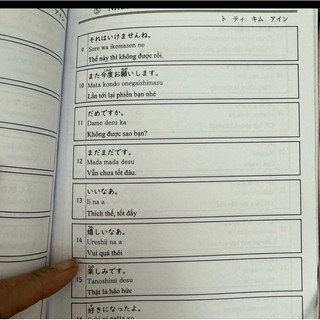 ト ティ キム アイン
9
それはいけませんね。
Sore wa ikemasen ne
Thế này thì không được rồi.
10
また今度お願いします。
Mata kondo onegaishimasu
Lần tới lại phiền bạn nhé
11
だめですか。
Dame desu ka
Không được sao bạn?
12
まだまだです。
Mada mada desu
Vẫn chưa tốt đâu.
13
いいなあ。
Ii na a
Thích thế, tốt đấy
14
嬉しいなあ。
Ureshii na a
Vui quá thôi
15
楽しみです。
Tanoshimi desu
Thật là háo hức
好きになったよ。